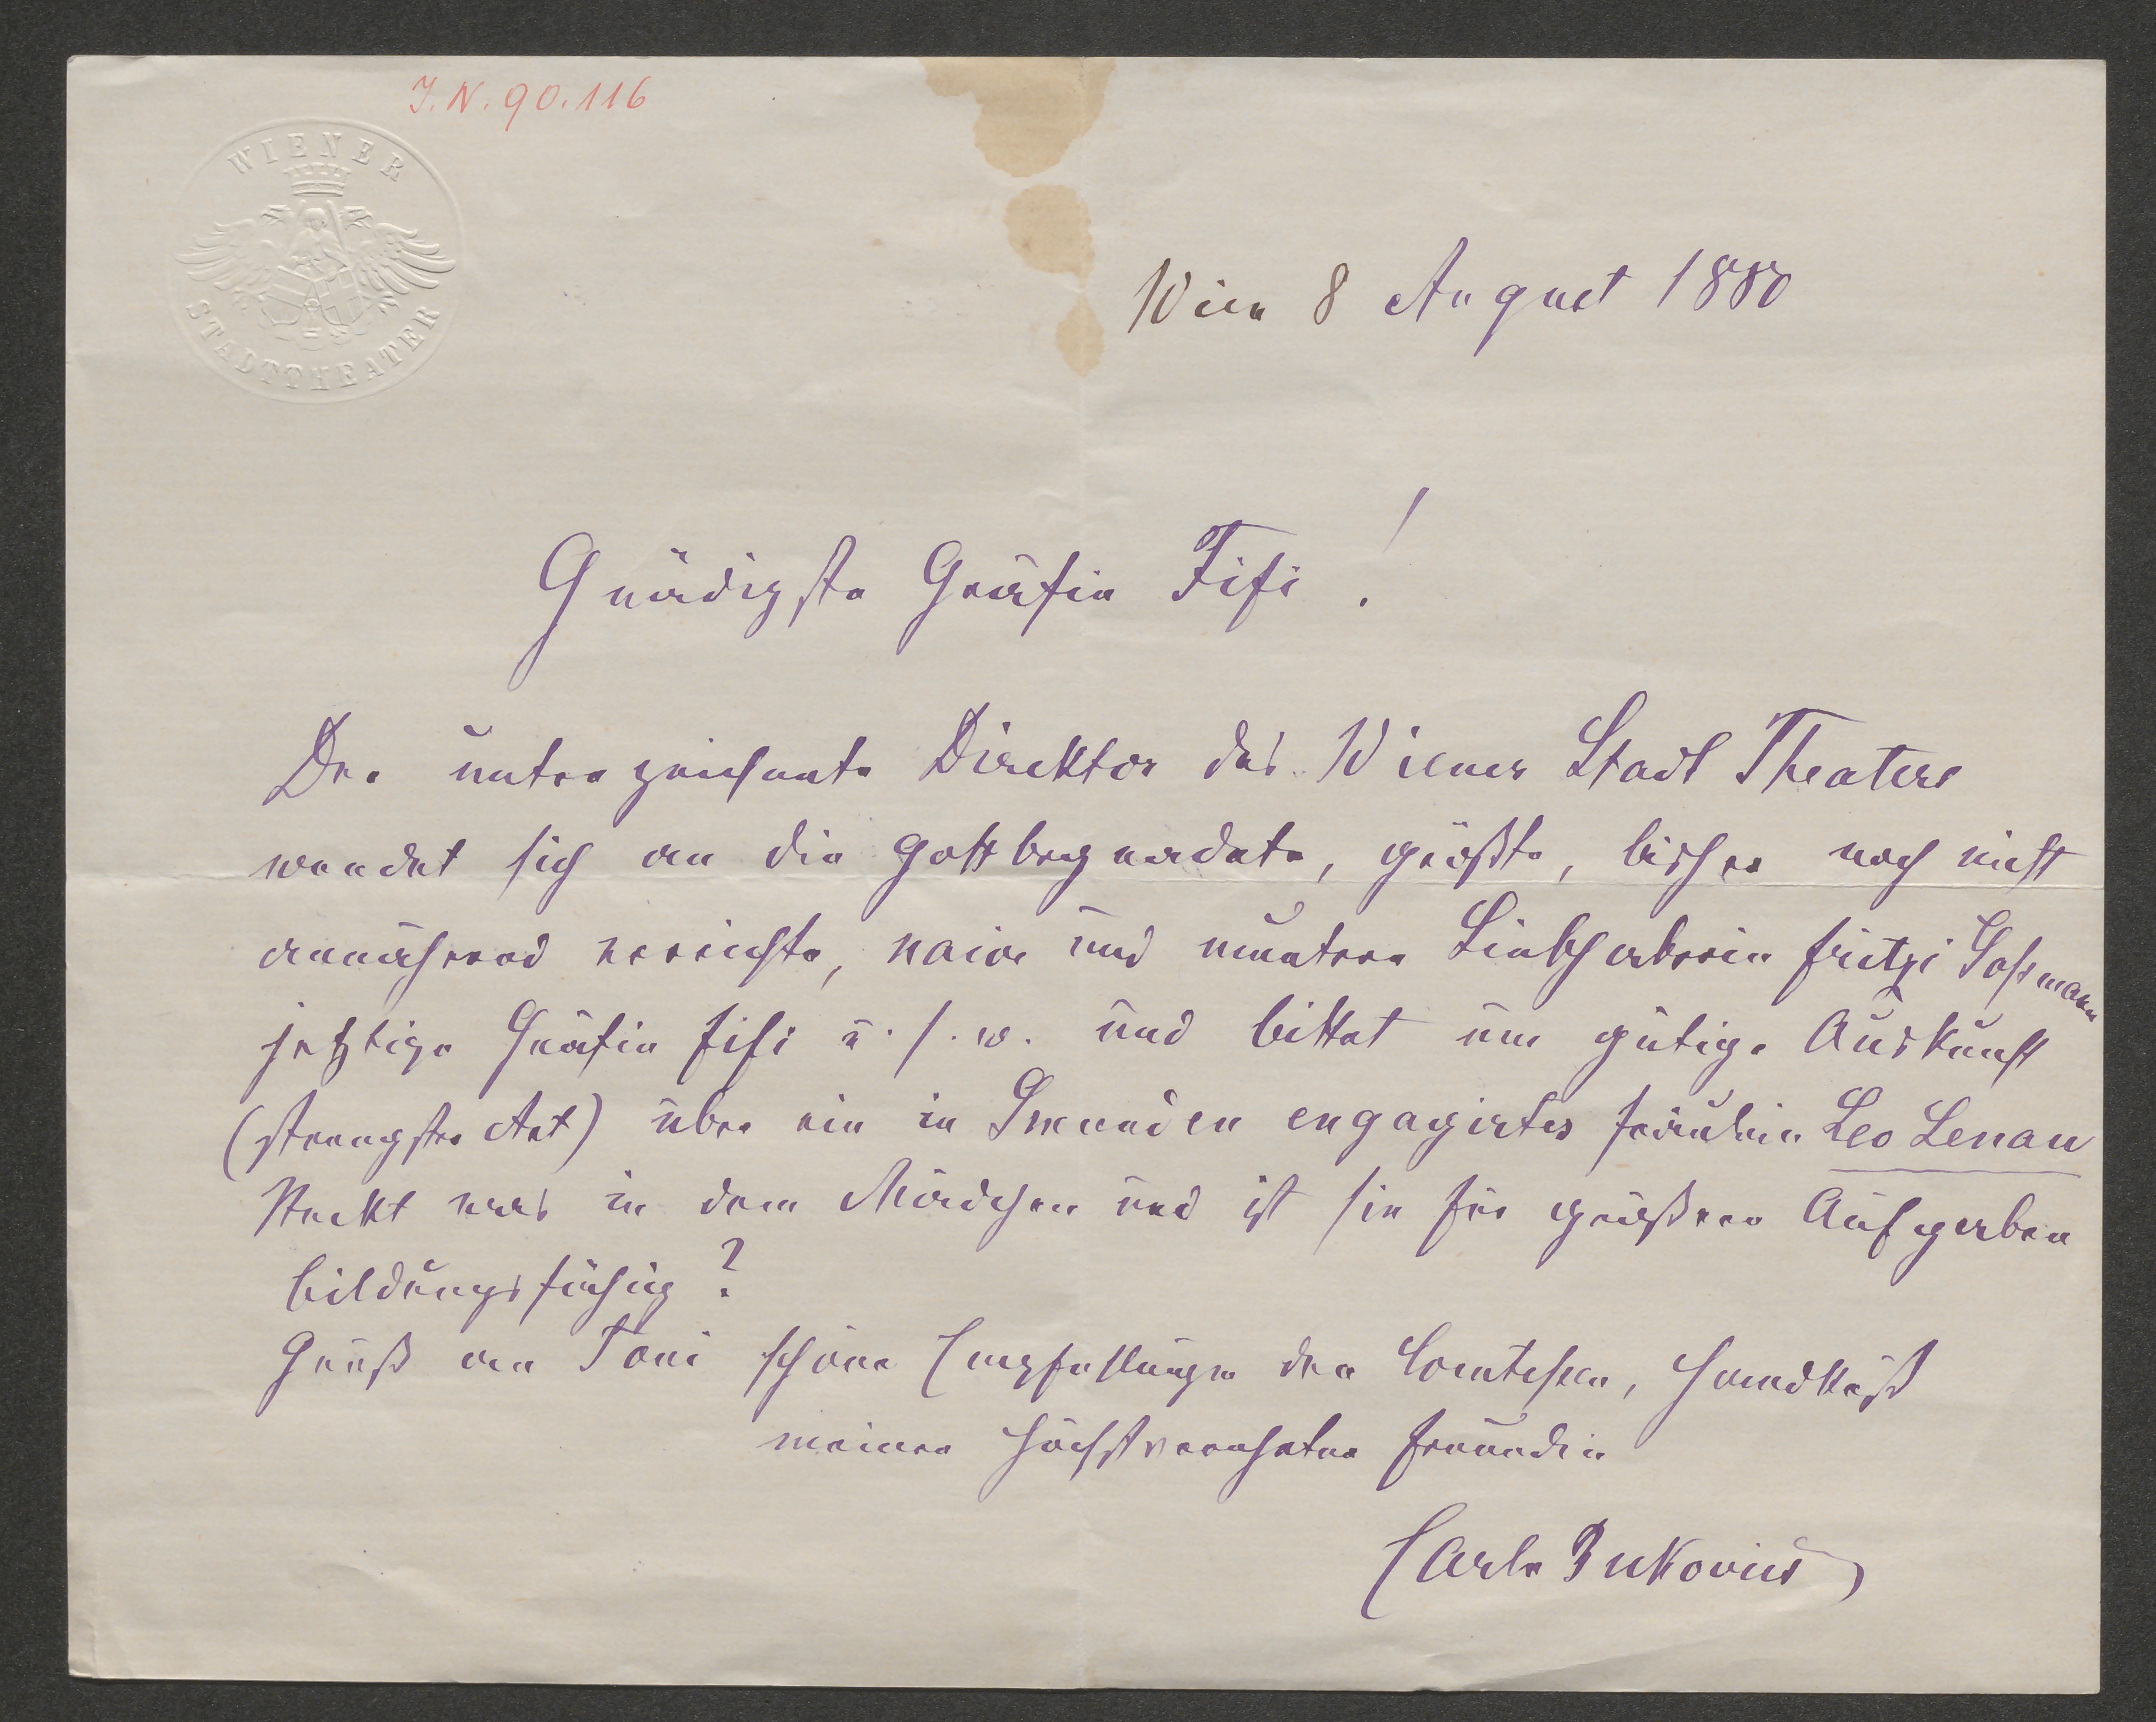 J.N. 90.116
WIENER
STADTTHEATER
Wien 8 August 1880
Gnädigste Gräfin Fifi!
Der unterzeichnete Direktor des Wiener Stadt Theaters
wendet sich an die gottbegnadete, größte, bisher noch nicht
annähernd erreichte, naive und muntere Liebhaberin Fritzi Goßmann
jetzige Gräfin Fifi u. s. w. und bittet um gütige Auskunft
(strengster Art) über ein in Gmunden engagirtes Fräulein Leo Lenau
Steckt was in dem Mädchen und ist sie für größere Aufgaben
bildungsfähig?
Gruß an Toni schöne Empfehlungen den Comtessen, Handkuß
meiner höchstverehrten Freundin
Carl Bukovics